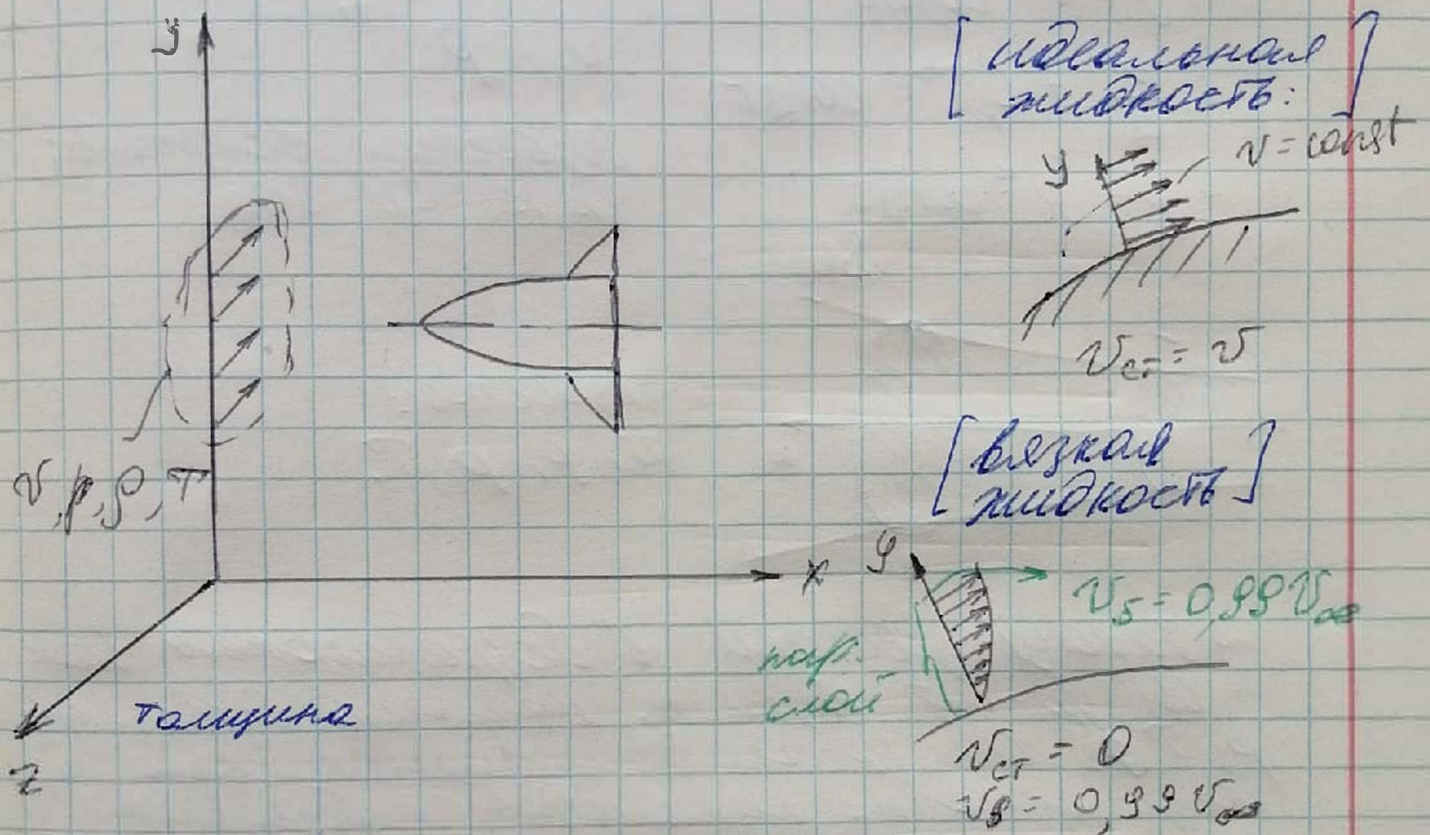 y
[ идеальная
жидкость: ]
y
v = const
v ст = v
v, p, ρ, T
[ вязкая
жидкость ]
x
y
v δ = 0,99 v ∞
пог.
слой
толщина
z
v ст = 0
v δ = 0,99 v ∞